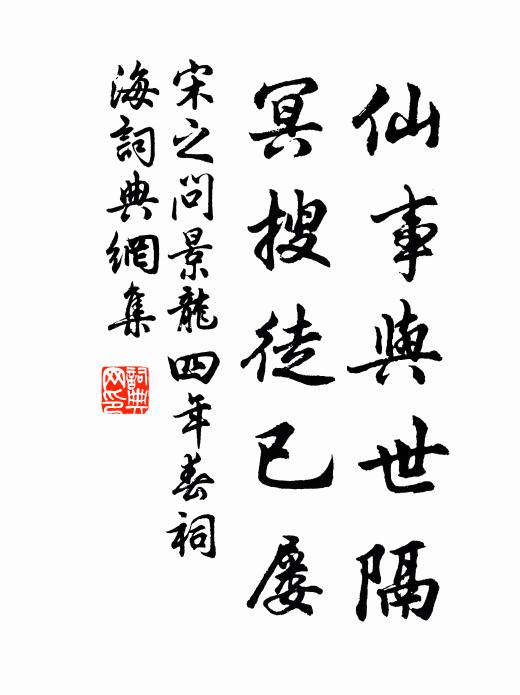 仙事與世隔
冥搜徒已屡
宋之問景龍四年春祠
海詞典網集
詞典
网印